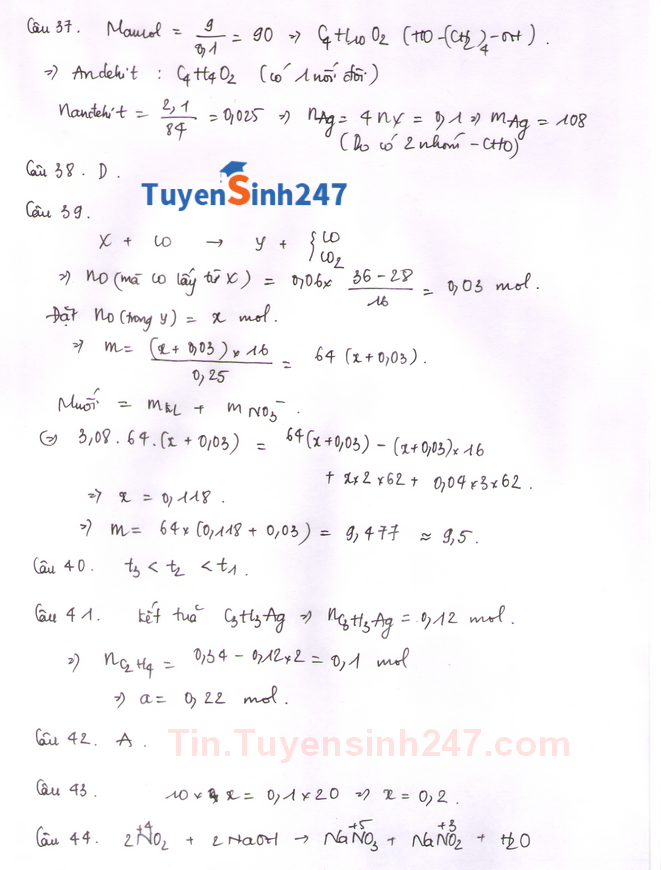 Câu 37. Mancol = 9/0,1 = 90 => C4H10O2 (HO-(CH2)4-OH).
=> Andehit : C4H4O2 (có 1 nối đôi)
Nandehit = 2,1/84 = 0,025 => nAg = 4nX = 0,1 => mAg = 108
(Do có 2 nhóm -CHO)
Câu 38. D.
TuyenSinh247
Câu 39.
X + CO → Y + {CO CO2
=> nO (mà CO lấy từ X) = 0,06x (36-28)/16 = 0,03 mol.
Đặt nO (trong Y) = x mol.
=> m = ((x+0,03)x16)/0,25 = 64(x+0,03).
Muối = mKL + mNO3-.
<=> 3,08.64.(x+0,03) = 64(x+0,03) - (x+0,03)x16
+ x x 2 x 62 + 0,04 x 3 x 62.
=> x = 0,118.
=> m = 64x(0,118 + 0,03) = 9,477 ≈ 9,5.
Câu 40. t3 < t2 < t1.
Câu 41. kết tủa C3H3Ag => nC3H3Ag = 0,12 mol.
=> nC2H4 = 0,34 - 0,12x2 = 0,1 mol
=> a = 0,22 mol.
Câu 42. A.
Tin.Tuyensinh247.com
Câu 43. 10 x x = 0,1 x 20 => x = 0,2.
Câu 44. 2N+4O2 + 2NaOH → NaN+5O3 + NaN+3O2 + H2O